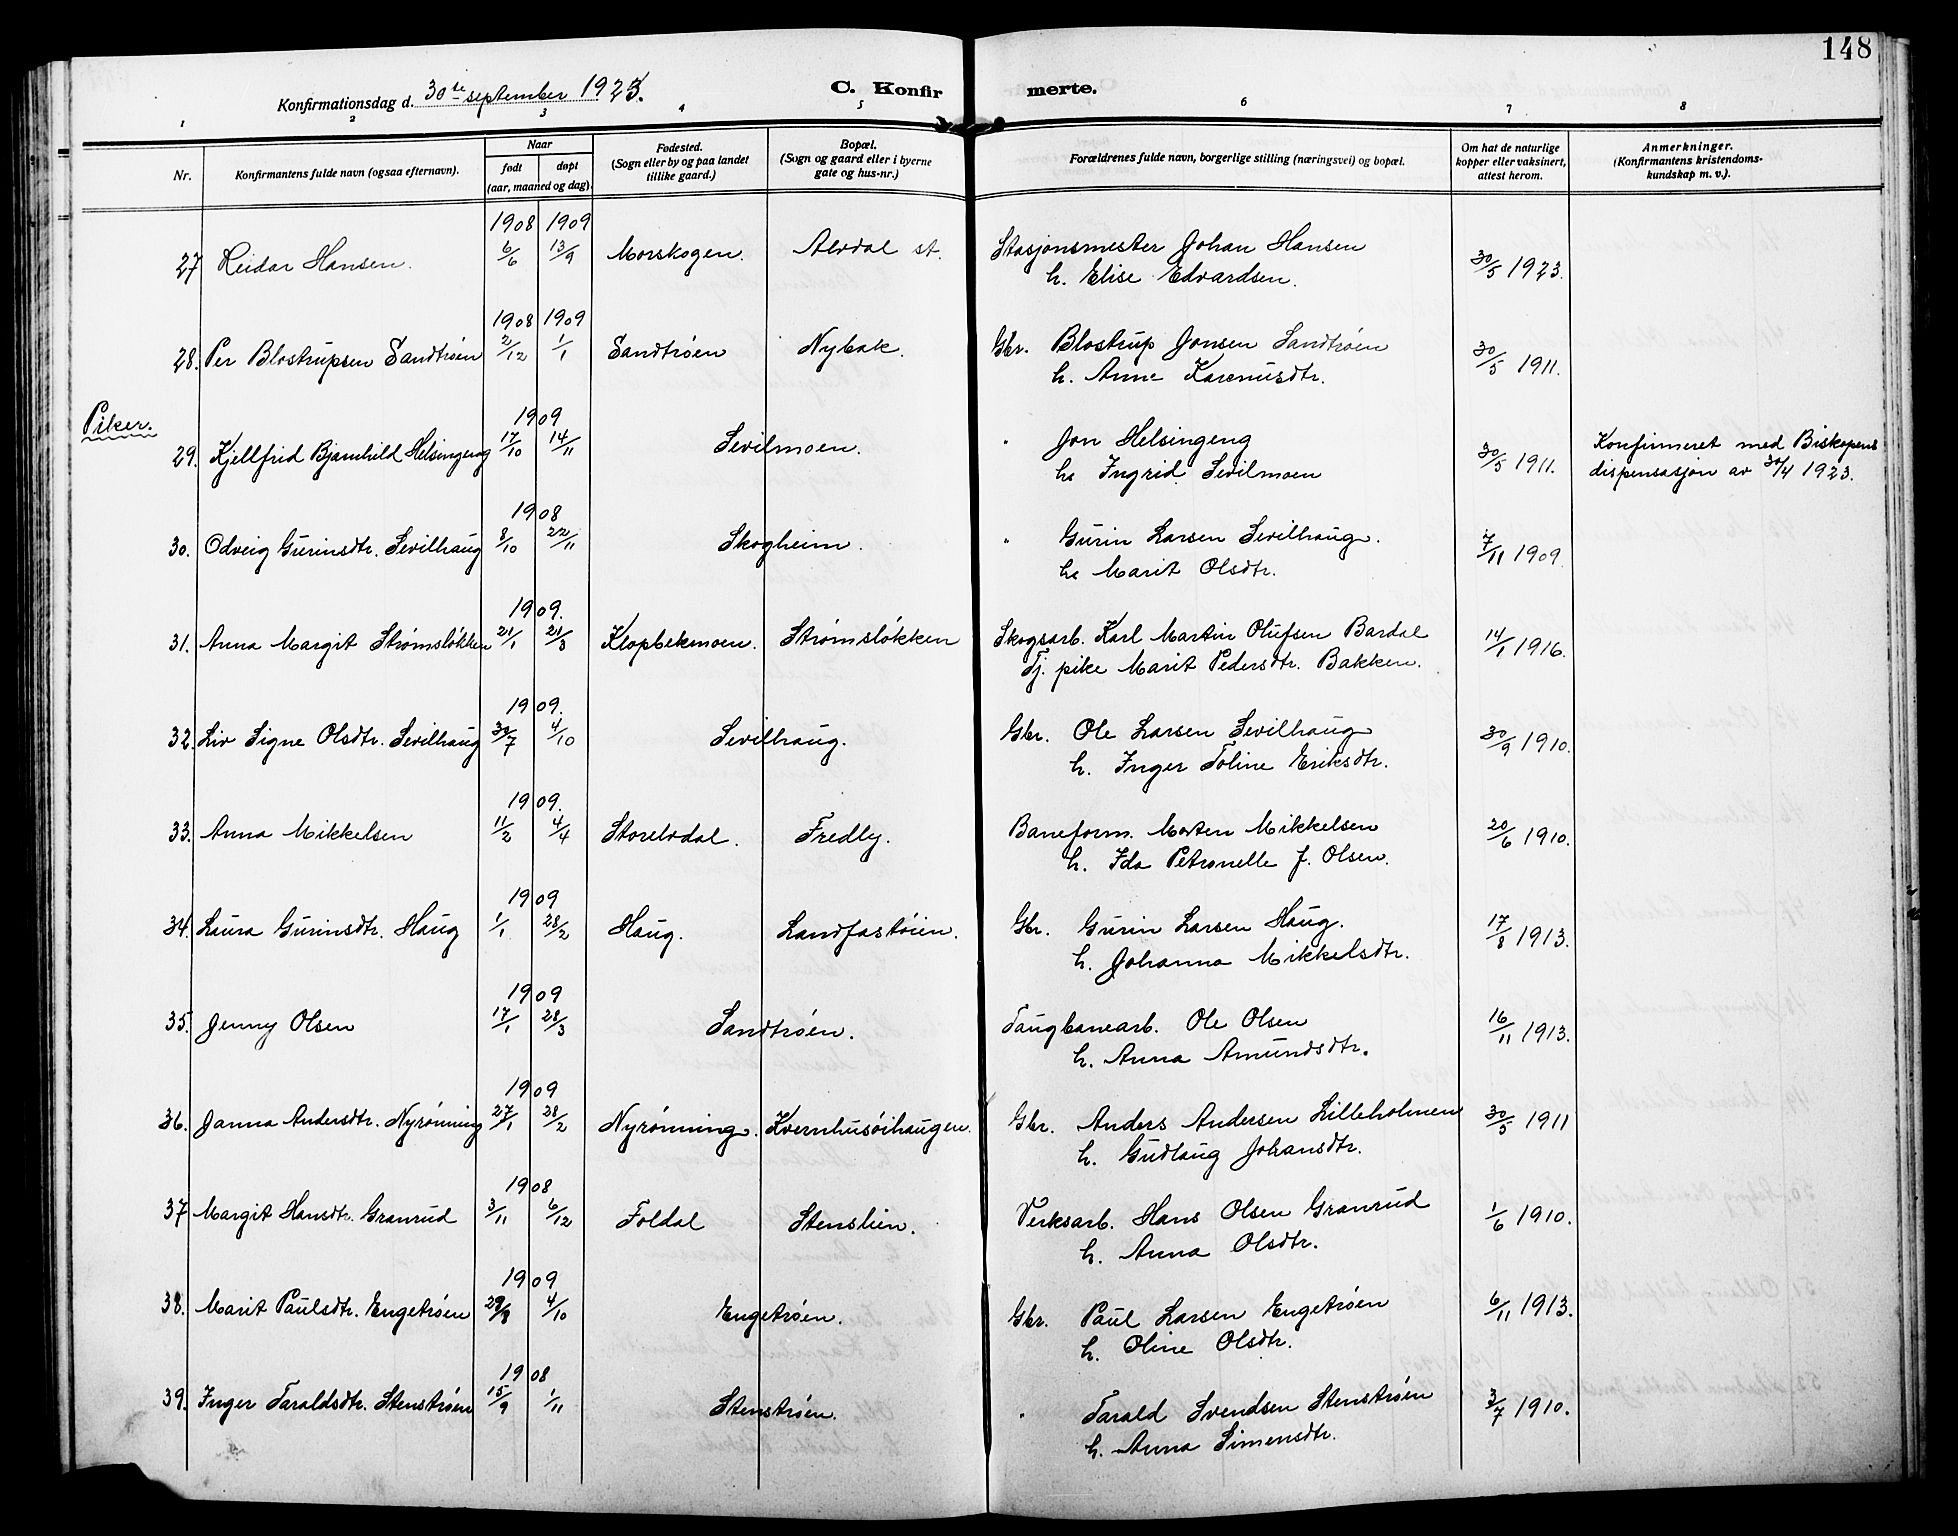 148
Konfirmationsdag d. 30te september 1923.
C. Konfirmerte.
1 2 3 4 5 6 7 8
Nr. Konfirmantens fulde navn (ogsaa efternavn). Naar født døpt (aar, maaned og dag). Fødested. (Sogn eller by og paa landet tillike gaard.) Bopæl. (Sogn og gaard eller i byerne gate og hus-nr.) Forældrenes fulde navn, borgerlige stilling (næringsvei) og bopæl. Om hat de naturlige kopper eller vaksinert, attest herom. Anmerkninger. (Konfirmantens kristendomskundskap m. v.).
1908 1909
27 Reidar Hansen. 6/6 13/9 Morskogen. Alvdal st. Stasjonsmester Johan Hansen 30/5 1923.
h. Elise Edvardsen.
1908 1909
28. Per Blostrupsen Sandtrøen 2/12 1/1 Sandtrøen Nybak. Gbr. Blostrup Jonsen Sandtrøen 30/5 1911.
h. Anne Karenusdtr.
Piker.
1909
29. Kjellfrid Bjarnhild Helsingeng 17/10 14/11 Sevilmoen. " Jon Helsingeng 30/5 1911. Konfirmeret med Biskopens
h. Ingrid Sevilmoen dispensasjon av 30/4 1923.
1908
30. Odveig Gurinsdtr. Sevilhaug 8/10 22/11 Skogheim. " Gurin Larsen Sevilhaug. 7/11 1909.
h. Marit Olsdtr.
1909.
31. Anna Margit Strømsløkken 21/1 21/3 Klopbekmoen. Strømsløkken Skogsarb. Karl Martin Olufsen Bardal 14/1 1916.
Tj. pike Marit Pedersdtr. Bakken.
1909.
32. Liv Signe Olsdtr. Sevilhaug 30/7 4/10 Sevilhaug. Gbr. Ole Larsen Sevilhaug 30/9 1910.
h. Inger Toline Eriksdtr.
1909.
33. Anna Mikkelsen 11/2 4/4 Storelvdal. Fredly. Baneform. Morten Mikkelsen 20/6 1910.
h. Ida Petronelle J. Olsen.
1909
34. Laura Gurinsdtr. Haug 1/1 28/2 Haug. Landfastøien. Gbr. Gurin Larsen Haug. 17/8 1913.
h. Johanna Mikkelsdtr.
1909
35. Jenny Olsen 17/1 28/3 Sandtrøen. Taugbanearb. Ole Olsen 16/11 1913.
h. Anna Amundsdtr.
1909
36. Janna Andersdtr. Nyrønning 27/1 28/2 Nyrønning. Kvernhusøihaugen. Gbr. Anders Andersen Lilleholmen 30/5 1911
h. Gudlaug Johansdtr.
1908
37 Margit Hansdtr. Granrud 3/11 6/12 Foldal Stenslien. Verksarb. Hans Olsen Granrud 1/6 1910.
h. Anna Olsdtr.
1909
38. Marit Paulsdtr. Engetrøen 29/8 4/10 Engetrøen. Gbr. Paul Larsen Engetrøen 6/11 1913.
h. Oline Olsdtr.
1908
39. Inger Taraldsdtr. Stenstrøen 15/9 1/11 Stenstrøen. " Tarald Svendsen Stenstrøen 3/7 1910.
h. Anna Simensdtr.